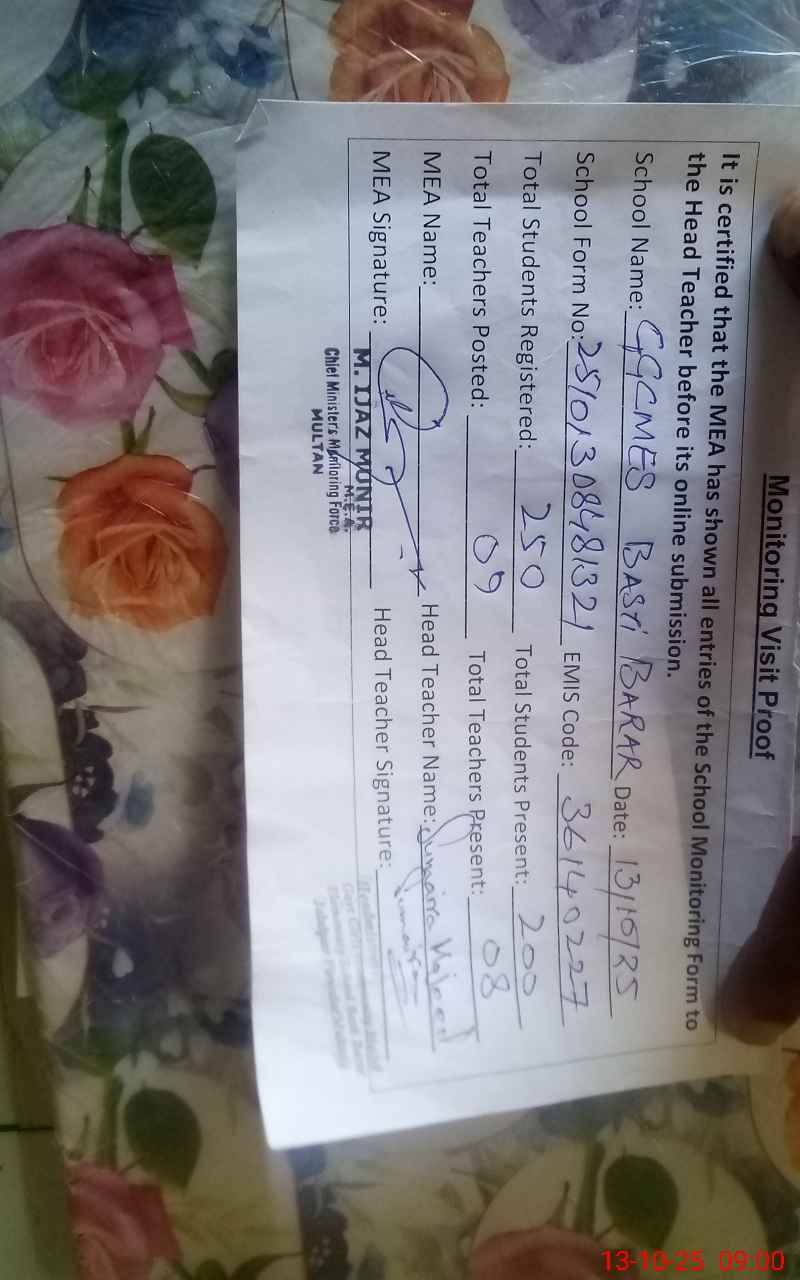 Monitoring Visit Proof
It is certified that the MEA has shown all entries of the School Monitoring Form to
the Head Teacher before its online submission.
School Name: GGCMES BASTI BARAR Date: 13/10/25
School Form No: EMIS Code: 36140227
Total Students Registered: 250 Total Students Present: 200
Total Teachers Posted: 09 Total Teachers Present: 08
MEA Name: Head Teacher Name: Sumaira
MEA Signature: Head Teacher Signature: Sumaira
M. IJAZ MUNIR
M.E.A.
Chief Minister's Monitoring Force
MULTAN
13-10-25 09:00